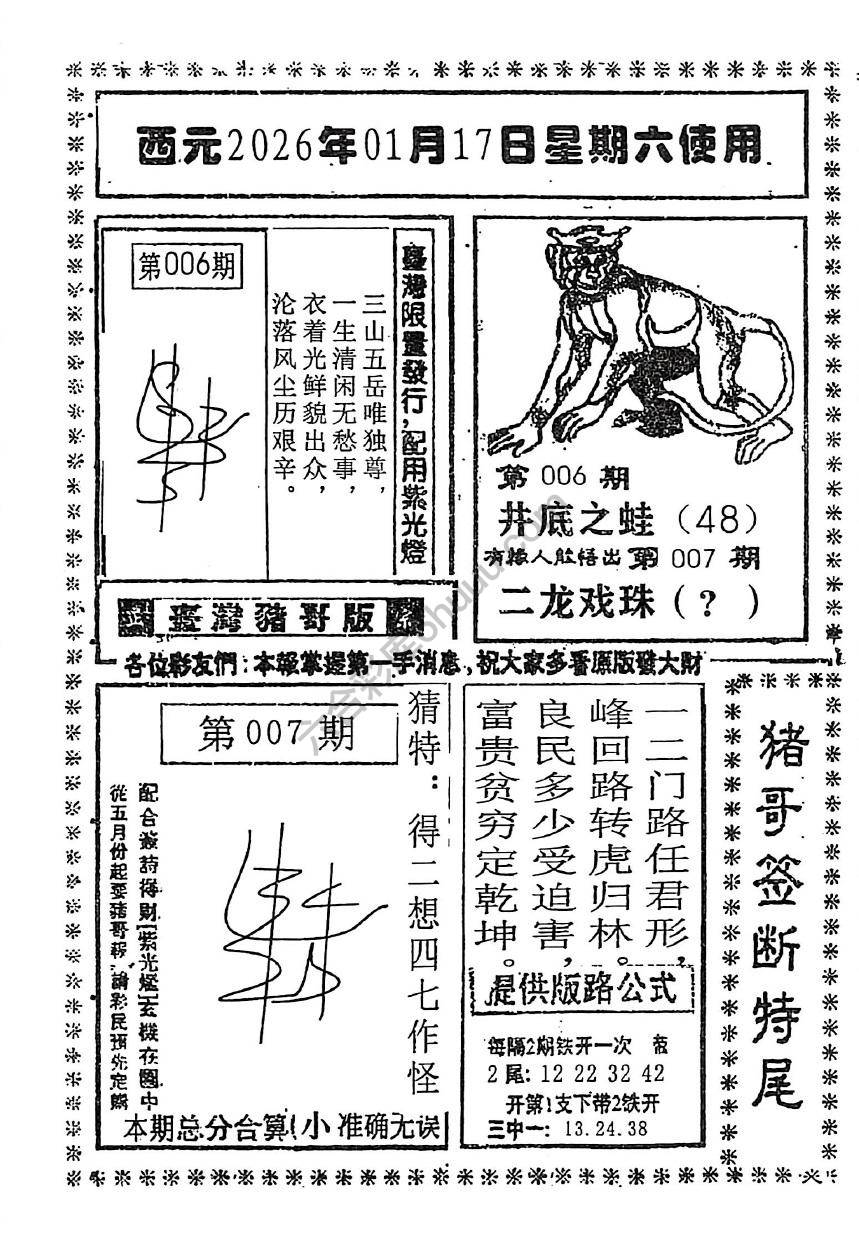 西元2026年01月17日星期六使用
第006期
三山五岳唯独尊，
一生清闲无愁事，
衣着光鲜貌出众，
沦落风尘历艰辛。
臺灣限量發行，配用紫光燈
臺灣豬哥版
第 006 期
井底之蛙（48）
有缘人能悟出 第 007 期
二龙戏珠（?）
各位彩友們：本報掌握第一手消息，祝大家多看原版發大財
第 007 期
猜特：得二想四七作怪
配合簽詩得財【紫光燈】玄機在圖中
從五月份起要豬哥報，請彩民預先定購
本期总分合算(小 准确无误
一二门路任君形，
峰回路转虎归林。
良民多少受迫害，
富贵贫穷定乾坤。
提供版路公式
每隔2期铁开一次
2尾：12 22 32 42
开第1支下带2铁开
三中一：13.24.38
猪哥签断特尾
六合彩库ohuuu.com